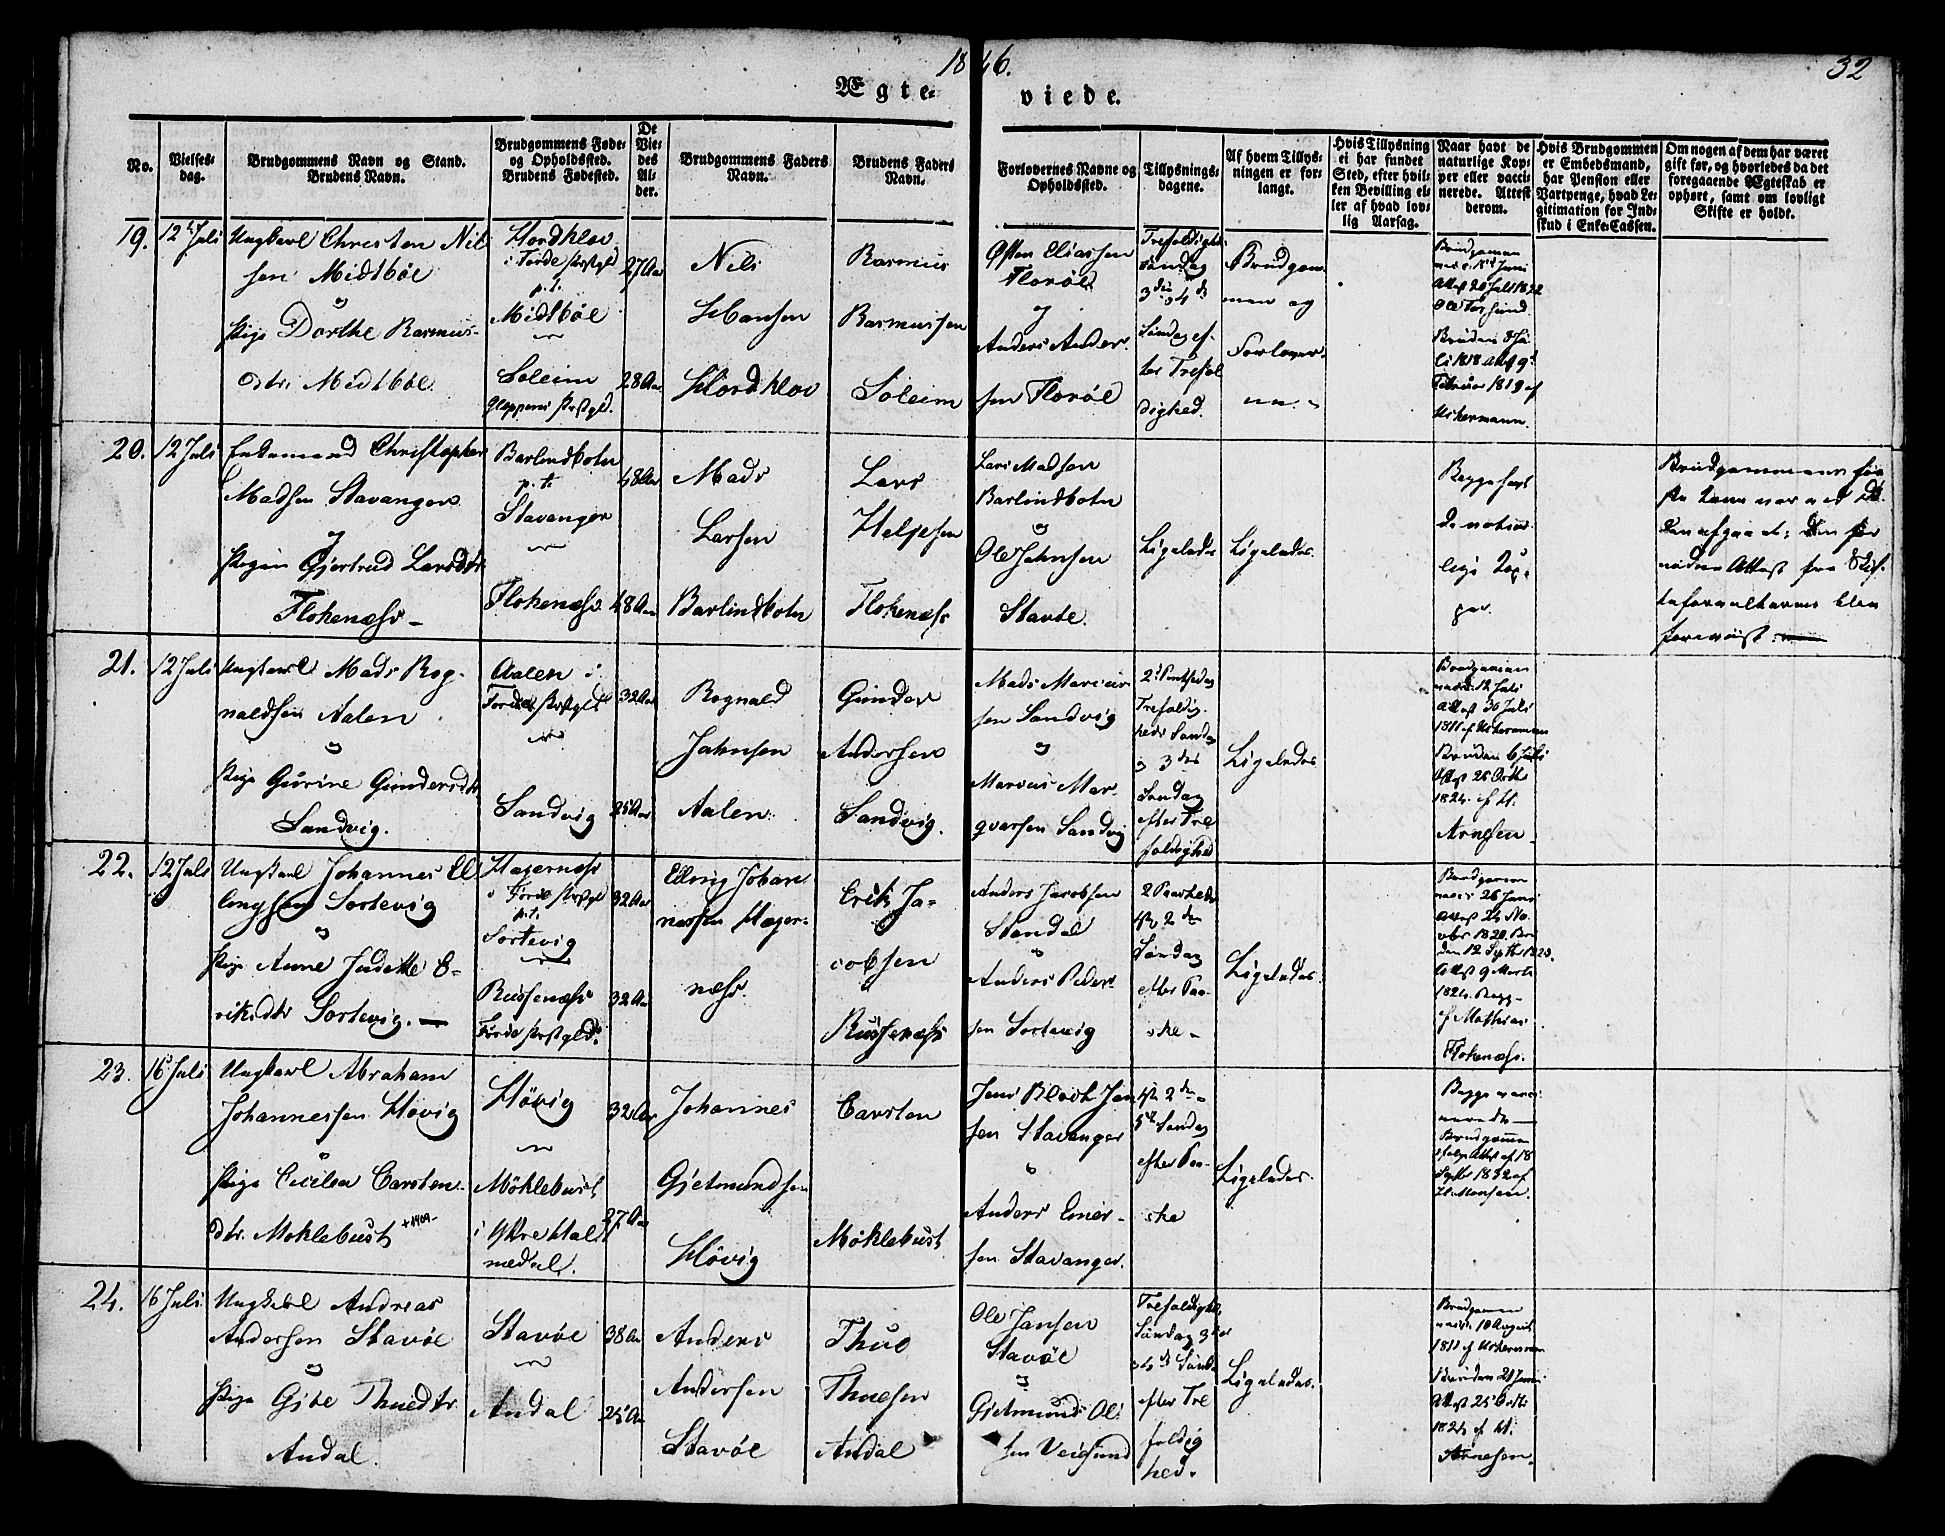 1846.
32
Ægte-
viede.
No.
Vielses-
dag.
Brudgommens Navn og Stand.
Brudens Navn.
Brudgommens Føde-
og Opholdssted.
Brudens Fødested.
De
Vie-
des
Al-
der.
Brudgommens Faders
Navn.
Brudens Faders
Navn.
Forlovernes Navne og
Opholdssted.
Tillysnings-
dagene.
Af hvem Tillys-
ningen er for-
langt.
Hvis Tillysning
ei har fundet
Sted, efter hvil-
ken Bevilling el-
ler af hvad lov-
lig Aarsag.
Naar havt de
naturlige Kop-
per eller vacci-
nerede. Attest
derom.
Hvis Brudgommen
er Embedsmand,
har Pension eller
Vartpenge, hvad Le-
gitimation for Ind-
skud i Enke-Cassen.
Om nogen af dem har været
gift før, og hvorledes da det
foregaaende Ægteskab er
ophørt, samt om lovligt
Skifte er holdt.
19.
12 Juli
Ungkarl Christen Nil
sen Midtbøe
og
Pige Dorthe Rasmus-
dtr. Midtbøe
Hordklov
i Førde Præstgld
p.t.
Midtbøe
Soleim
Gloppens Præstgld.
27 Aar
28 Aar
Nils
Hansen
Hordklov
Rasmus
Rasmussen
Soleim
Østen Eliassen
Florøe
og
Anders Ander-
sen Florøe
Trefoldigh.
Søndag
3die 4de
Søndag ef-
ter Trefol
dighed.
Brudgom-
men og
Forlover-
ne.
Brudgommen
Attest 20 Juli 1822
Bruden 8 Ju
li 1818 Att 9
Februar 1819 af
Uckermann.
20.
12 Juli
Enkemand Christopher
Madsen Stavanger
og
Pigen Gjertrud Larsdtr.
Flokenæss
Barlindbotn
p.t.
Stavanger
Flokenæss
48 Aar
48 Aar
Mads
Larsen
Barlindbotn
Lars
Helgesen
Flokenæss
Lars Madsen
Barlindbotn
og
Ole Jahnsen
Stavøe.
Ligeledes
Ligeledes.
Begge havt
de natur-
lige Kop-
per.
Brudgommens før
ste Kone var ved Dø
den afgaaet; den for
nødne Attest fra Skif-
teforvalteren blev
foreviist.
21.
12 Juli
Ungkarl Mads Rog-
naldsen Aalen
og
Pige Gurine Gundersdtr
Sandvig.
Aalen i
Førde Præstgld
Sandvig
32 Aar
25 Aar
Rognald
Jahnsen
Aalen
Gunder
Andersen
Sandvig.
Mads Marcus-
sen Sandvig
og
Marcus Mar-
qvarsen Sandvig
2d Pintsedag
Trefoldig-
heds Søndag
og 3die
Søndag
efter Tre
foldighed
Ligeledes
Brudgommen
vacc. 12 Juli
Attest 30 Juli
1811 af Uckermann
Bruden 6 Juli
Attest 25 Octbr
1824 af H.
Arnesen
22.
12 Juli
Ungkarl Johannes El
lingsen Sortevig
og
Pige Anne Judithe E-
riksdtr Sortevig.
Hagernæss
i Førde Præstgld
p.t.
Sortevig
Russenæss
Førde Præstgld.
32 Aar
32 Aar
Elling Johan-
nessen Hager-
næss.
Erik Ja-
cobsen
Russenæss
Anders Jacobsen
Standal
og
Anders Peder-
sen Sortevig
2 Paaskedag
1ste 2den
Søndag
efter Paa-
ske
Ligeledes.
Brudgommen
vacc. 26 Juni
Attest 24 No
vbr 1820. Bru
den 12 Septbr 1823.
Attest 9 Marts
1824. Begge
af Mathias
Flokenæss.
23.
16 Juli
Ungkarl Abraham
Johannessen Høvig
og
Pige Cecilia Carsten-
dtr. Moklebust
Høvig
Möklebust
i Ytre Hal
medal.
32 Aar
27 Aar
Johannes
Gjetmundsen
Høvig
Carsten
Möklebust
Jens Blodt Jan
sen Stavanger
og
Anders Einer-
sen Stavanger.
1ste 2den
5te Søndag
efter Paa-
ske
Ligeledes.
Begge vacci-
nerede
Brudgommen
ifølge Attest af 18
Septbr 1832 af
H. Monsen.
24.
16 Juli
Ungkarl Andreas
Andersen Stavøe
og
Pige Gjøe Thuedtr.
Andal.
Stavøe
Andal
38 Aar
25 Aar
Anders
Andersen
Stavøe
Thue
Thuesen
Andal
Ole Jansen
Stavøe
og
Gjetmund Ol-
sen Veisund
Trefoldigh.
Søndag 3die
og 4de Sønd.
efter Tre
foldig
hed.
Ligeledes.
Brudgommen
vacc. 10 August
1811 af Uckermann
Bruden 21 Juni
Attest 25 Octbr
1824 af H.
Arnesen.